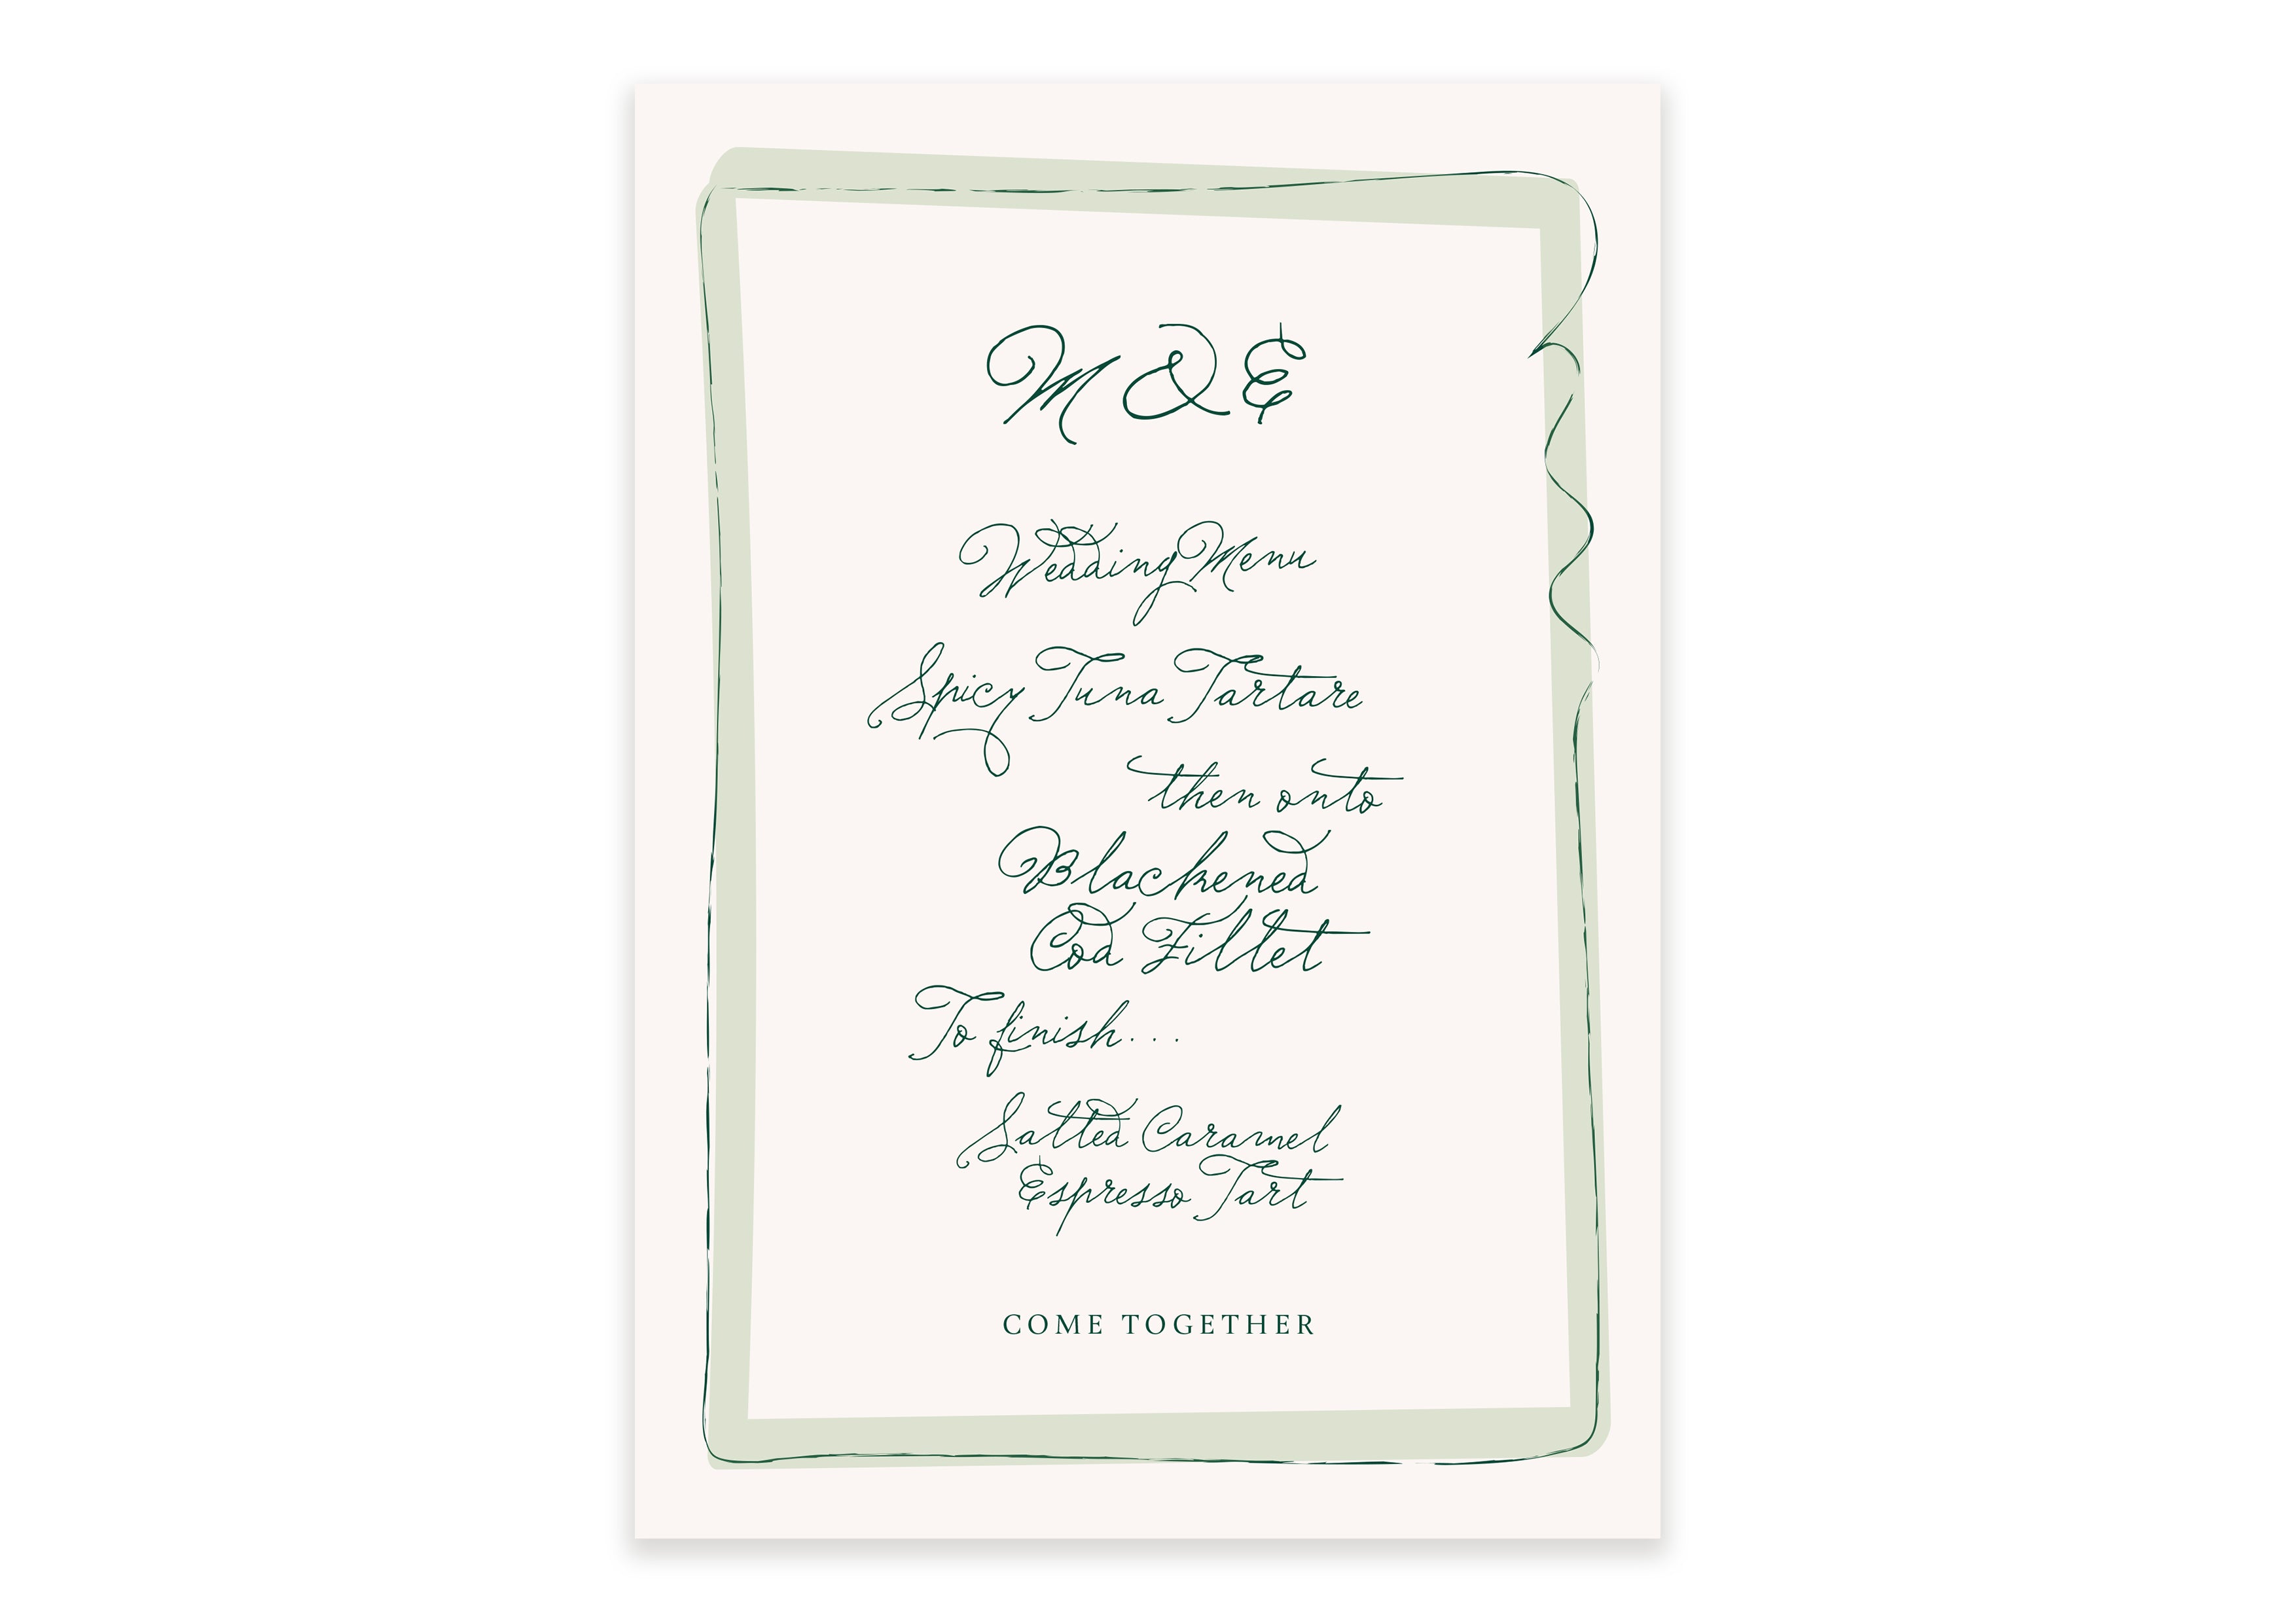 M & E
Wedding Menu
Spicy Tuna Tartare
then onto
Blackened
Cod Fillet
To finish...
Salted Caramel
Espresso Tart
COME TOGETHER